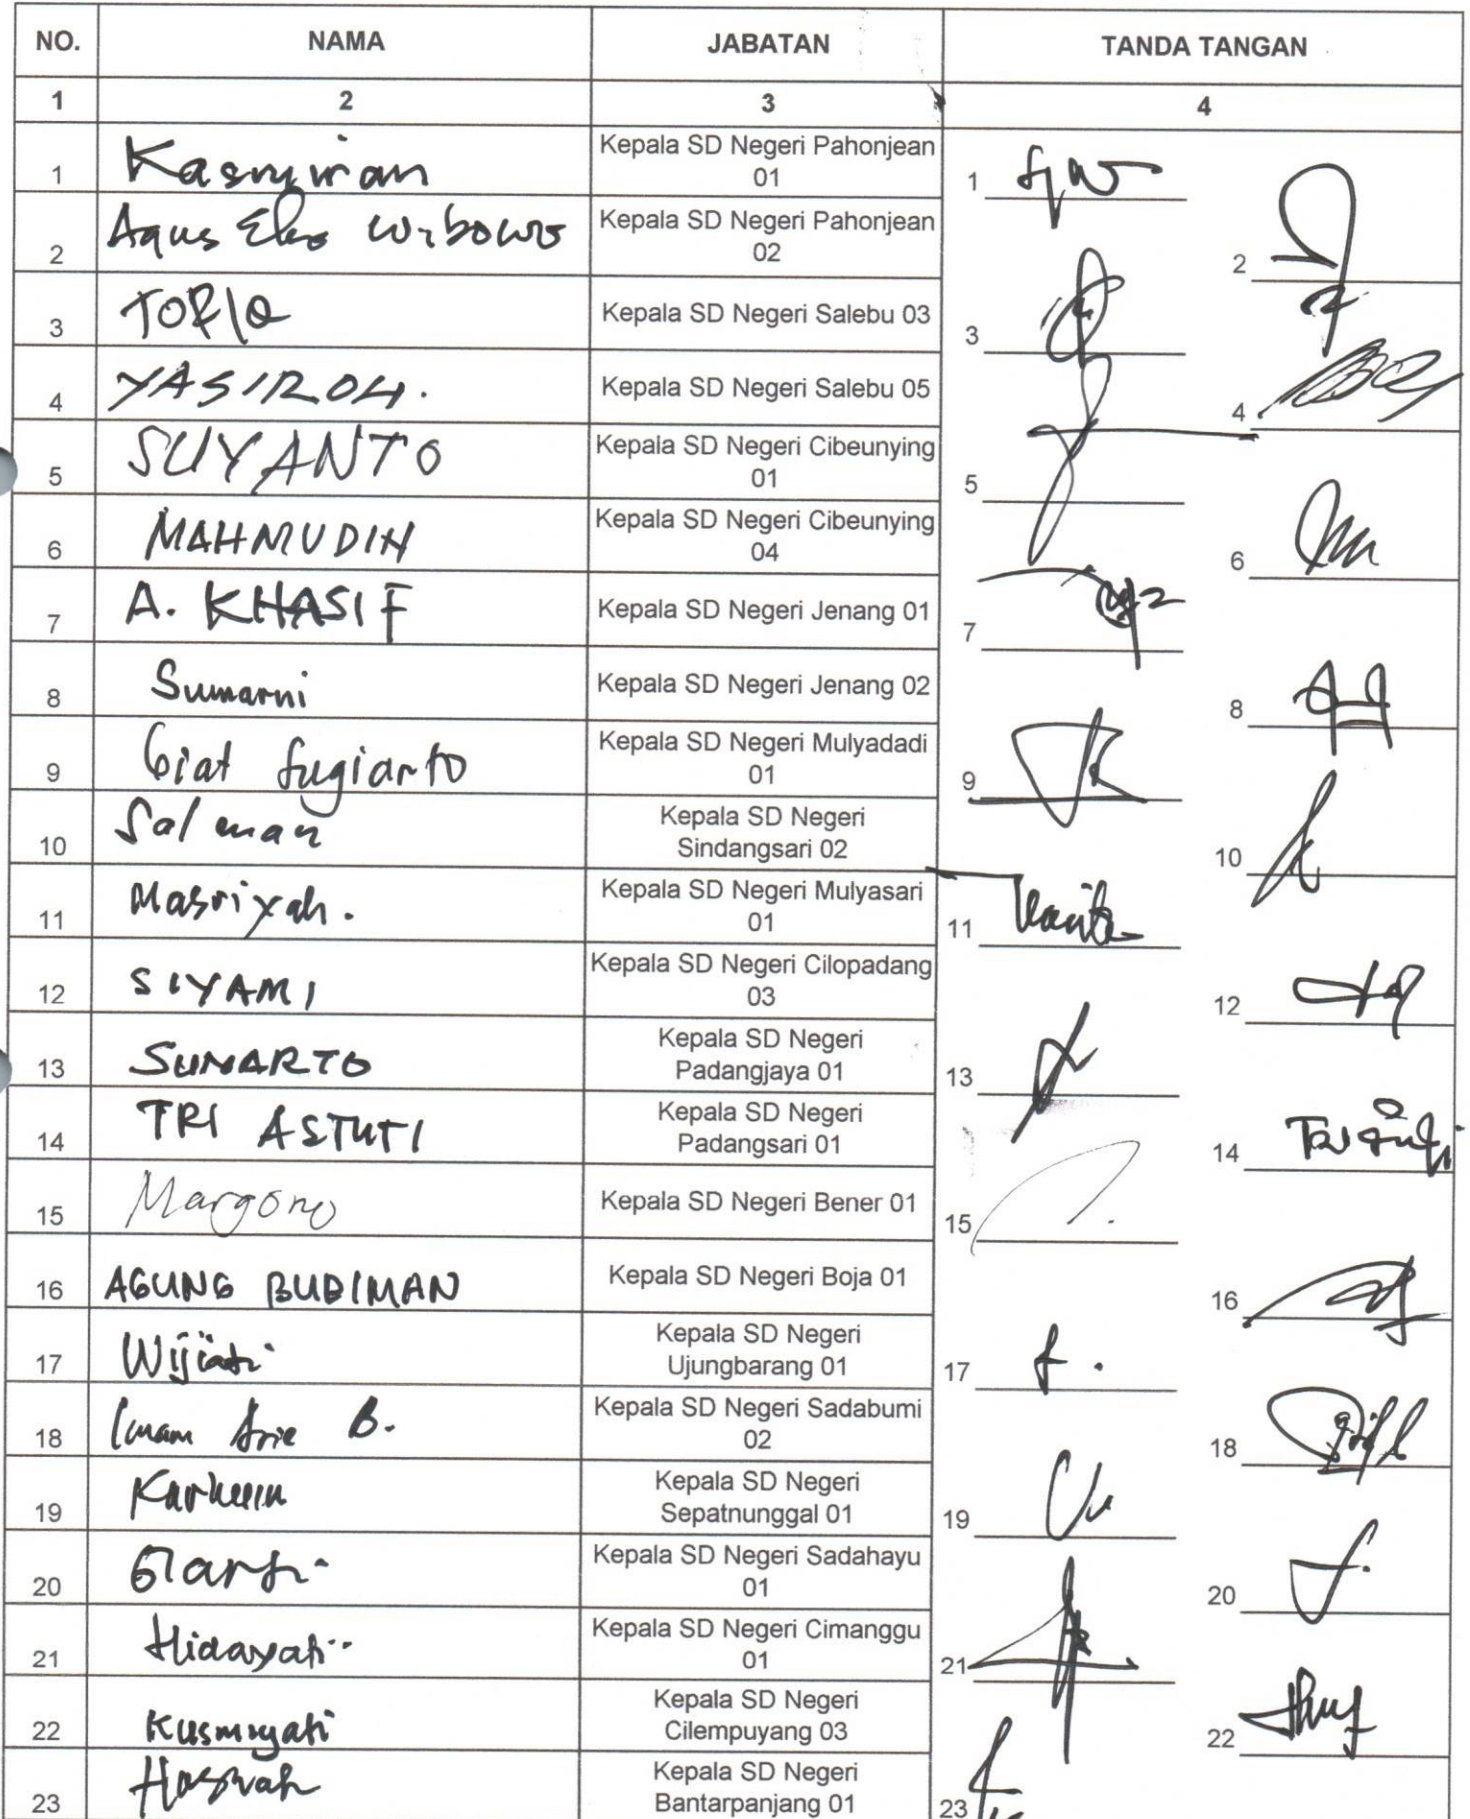 NO. NAMA JABATAN TANDA TANGAN
1 2 3 4
1 Kasmiran Kepala SD Negeri Pahonjean 01 1
2 Agus Eko Wibowo Kepala SD Negeri Pahonjean 02 2
3 TOFIQ Kepala SD Negeri Salebu 03 3
4 YASIROH. Kepala SD Negeri Salebu 05 4
5 SUYANTO Kepala SD Negeri Cibeunying 01 5
6 MAHMUDIN Kepala SD Negeri Cibeunying 04 6
7 A. KHASIF Kepala SD Negeri Jenang 01 7
8 Sumarni Kepala SD Negeri Jenang 02 8
9 Giat Sugianto Kepala SD Negeri Mulyadadi 01 9
10 Salman Kepala SD Negeri Sindangsari 02 10
11 Masriyah. Kepala SD Negeri Mulyasari 01 11
12 SIYAMI Kepala SD Negeri Cilopadang 03 12
13 SUMARTO Kepala SD Negeri Padangjaya 01 13
14 TRI ASTUTI Kepala SD Negeri Padangsari 01 14
15 Margono Kepala SD Negeri Bener 01 15
16 AGUNG BUDIMAN Kepala SD Negeri Boja 01 16
17 Wijiati Kepala SD Negeri Ujungbarang 01 17
18 Imam Arie B. Kepala SD Negeri Sadabumi 02 18
19 Kepala SD Negeri Sepatnunggal 01 19
20 Giarti Kepala SD Negeri Sadahayu 01 20
21 Hidayati Kepala SD Negeri Cimanggu 01 21
22 Kusmiyati Kepala SD Negeri Cilempuyang 03 22
23 Kepala SD Negeri Bantarpanjang 01 23